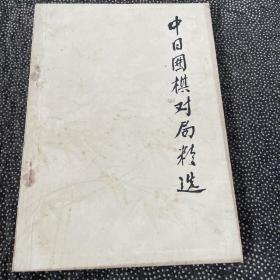 中日围棋对局精选